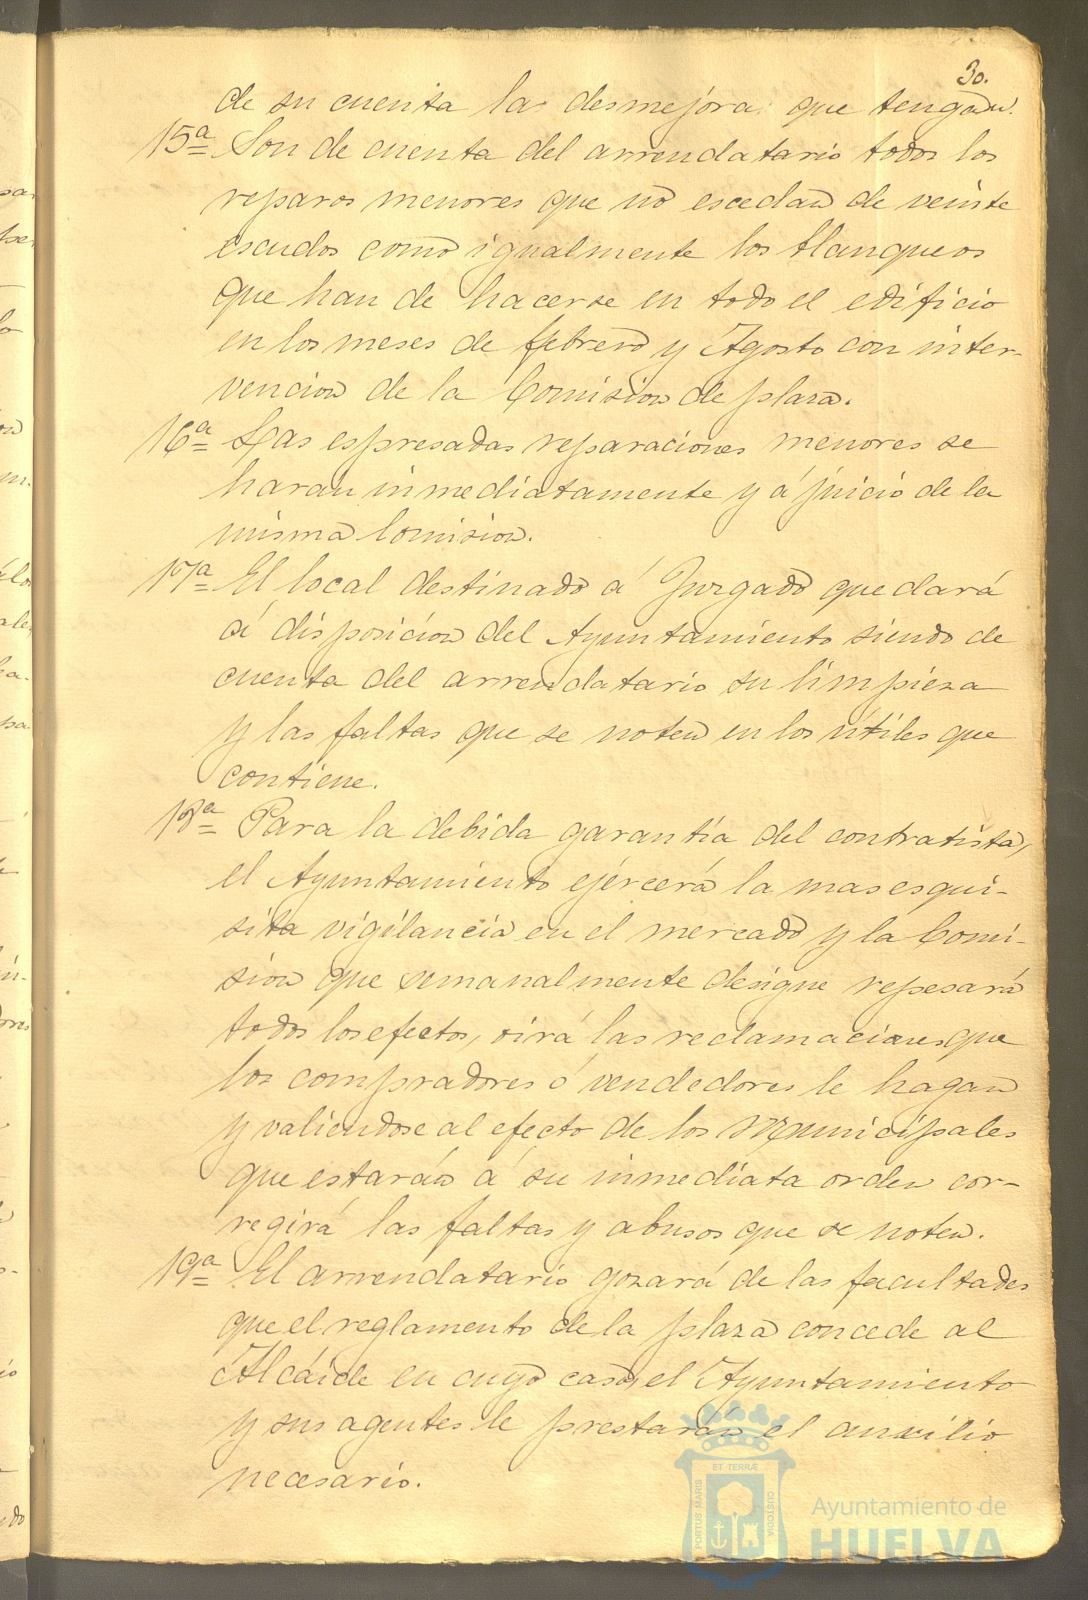 30.
de su cuenta las desmejoras que tengan.
15ª Son de cuenta del arrendatario todos los
reparos menores que no escedan de veinte
escudos como igualmente los blanqueos
que han de hacerse en todo el edificio
en los meses de febrero y Agosto con inter-
vencion de la Comision de plaza.
16ª Las espresadas reparaciones menores se
harán inmediatamente y á juicio de la
misma Comision.
17ª El local destinado á Juzgado quedará
á disposicion del Ayuntamiento siendo de
cuenta del arrendatario su limpieza
y las faltas que se noten en los útiles que
contiene.
18ª Para la debida garantia del contratista,
el Ayuntamiento ejercerá la mas esqui-
sita vigilancia en el mercado y la Comi-
sion que semanalmente designe repesará
todos los efectos, oirá las reclamaciones que
los compradores ó vendedores le hagan
y valiendose al efecto de los Municipales
que estarán á su inmediata orden cor-
regirá las faltas y abusos que se noten.
19ª El arrendatario gozará de las facultades
que el reglamento de la plaza concede al
Alcaide en cuyo caso, el Ayuntamiento
y sus agentes le prestarán el auxilio
necesario.
PORTUS MARIS ET TERRÆ CUSTODIA
Ayuntamiento de
HUELVA